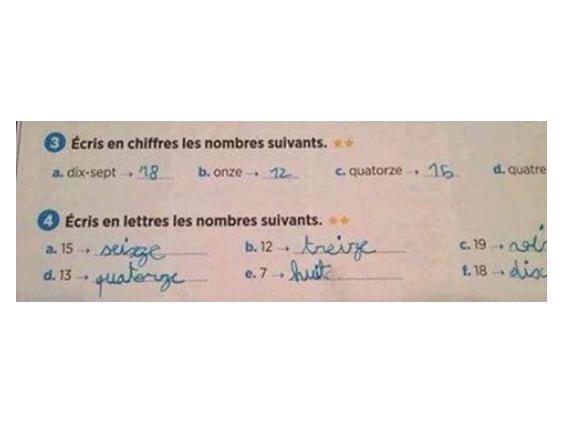 3 Écris en chiffres les nombres suivants.
a. dix-sept → 18 b. onze → 12 c. quatorze → 15 d. quatre
4 Écris en lettres les nombres suivants.
a. 15 → seizze b. 12 → treize c. 19 →
d. 13 → quatorze e. 7 → huit f. 18 → dix